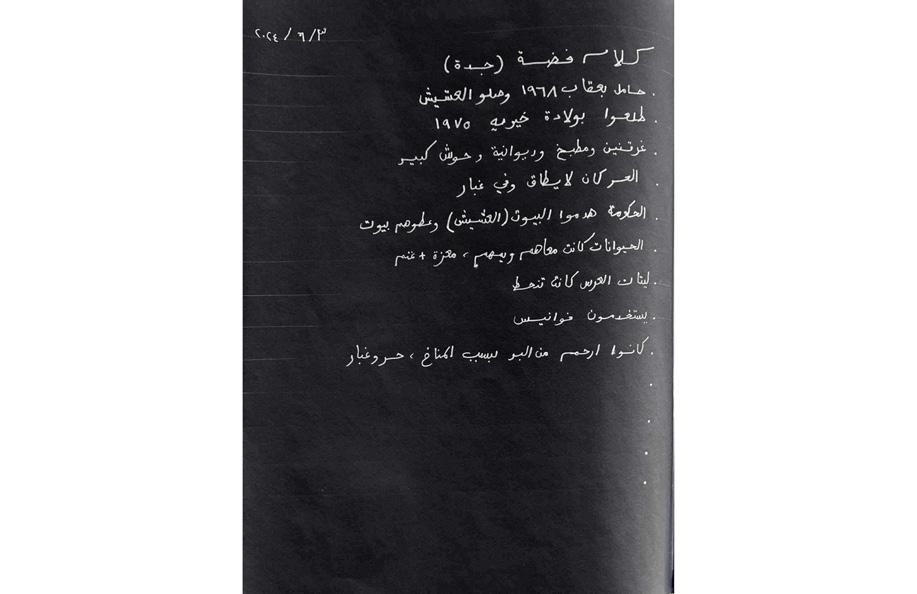 ٢٠٢٤ / ٦ / ٣
كلام فضة (جدة)
. حامل بعقاب ١٩٦٨ وصلو العشيش
. طلعوا بولادة خيريه ١٩٧٥
. غرفتين ومطبخ وديوانية وحوش كبير
. الحر كان لا يطاق وفي غبار
. الحكومة هدموا البيوت (العشيش) وعطوهم بيوت
. الحيوانات كانت معاهم وبيهم ، معزة + غنم
. لبنات العرس كانت تنحط
. يستخدمون فوانيس
. كانوا ارحم من البر بسبب المناخ ، حر وغبار
.
.
.
.